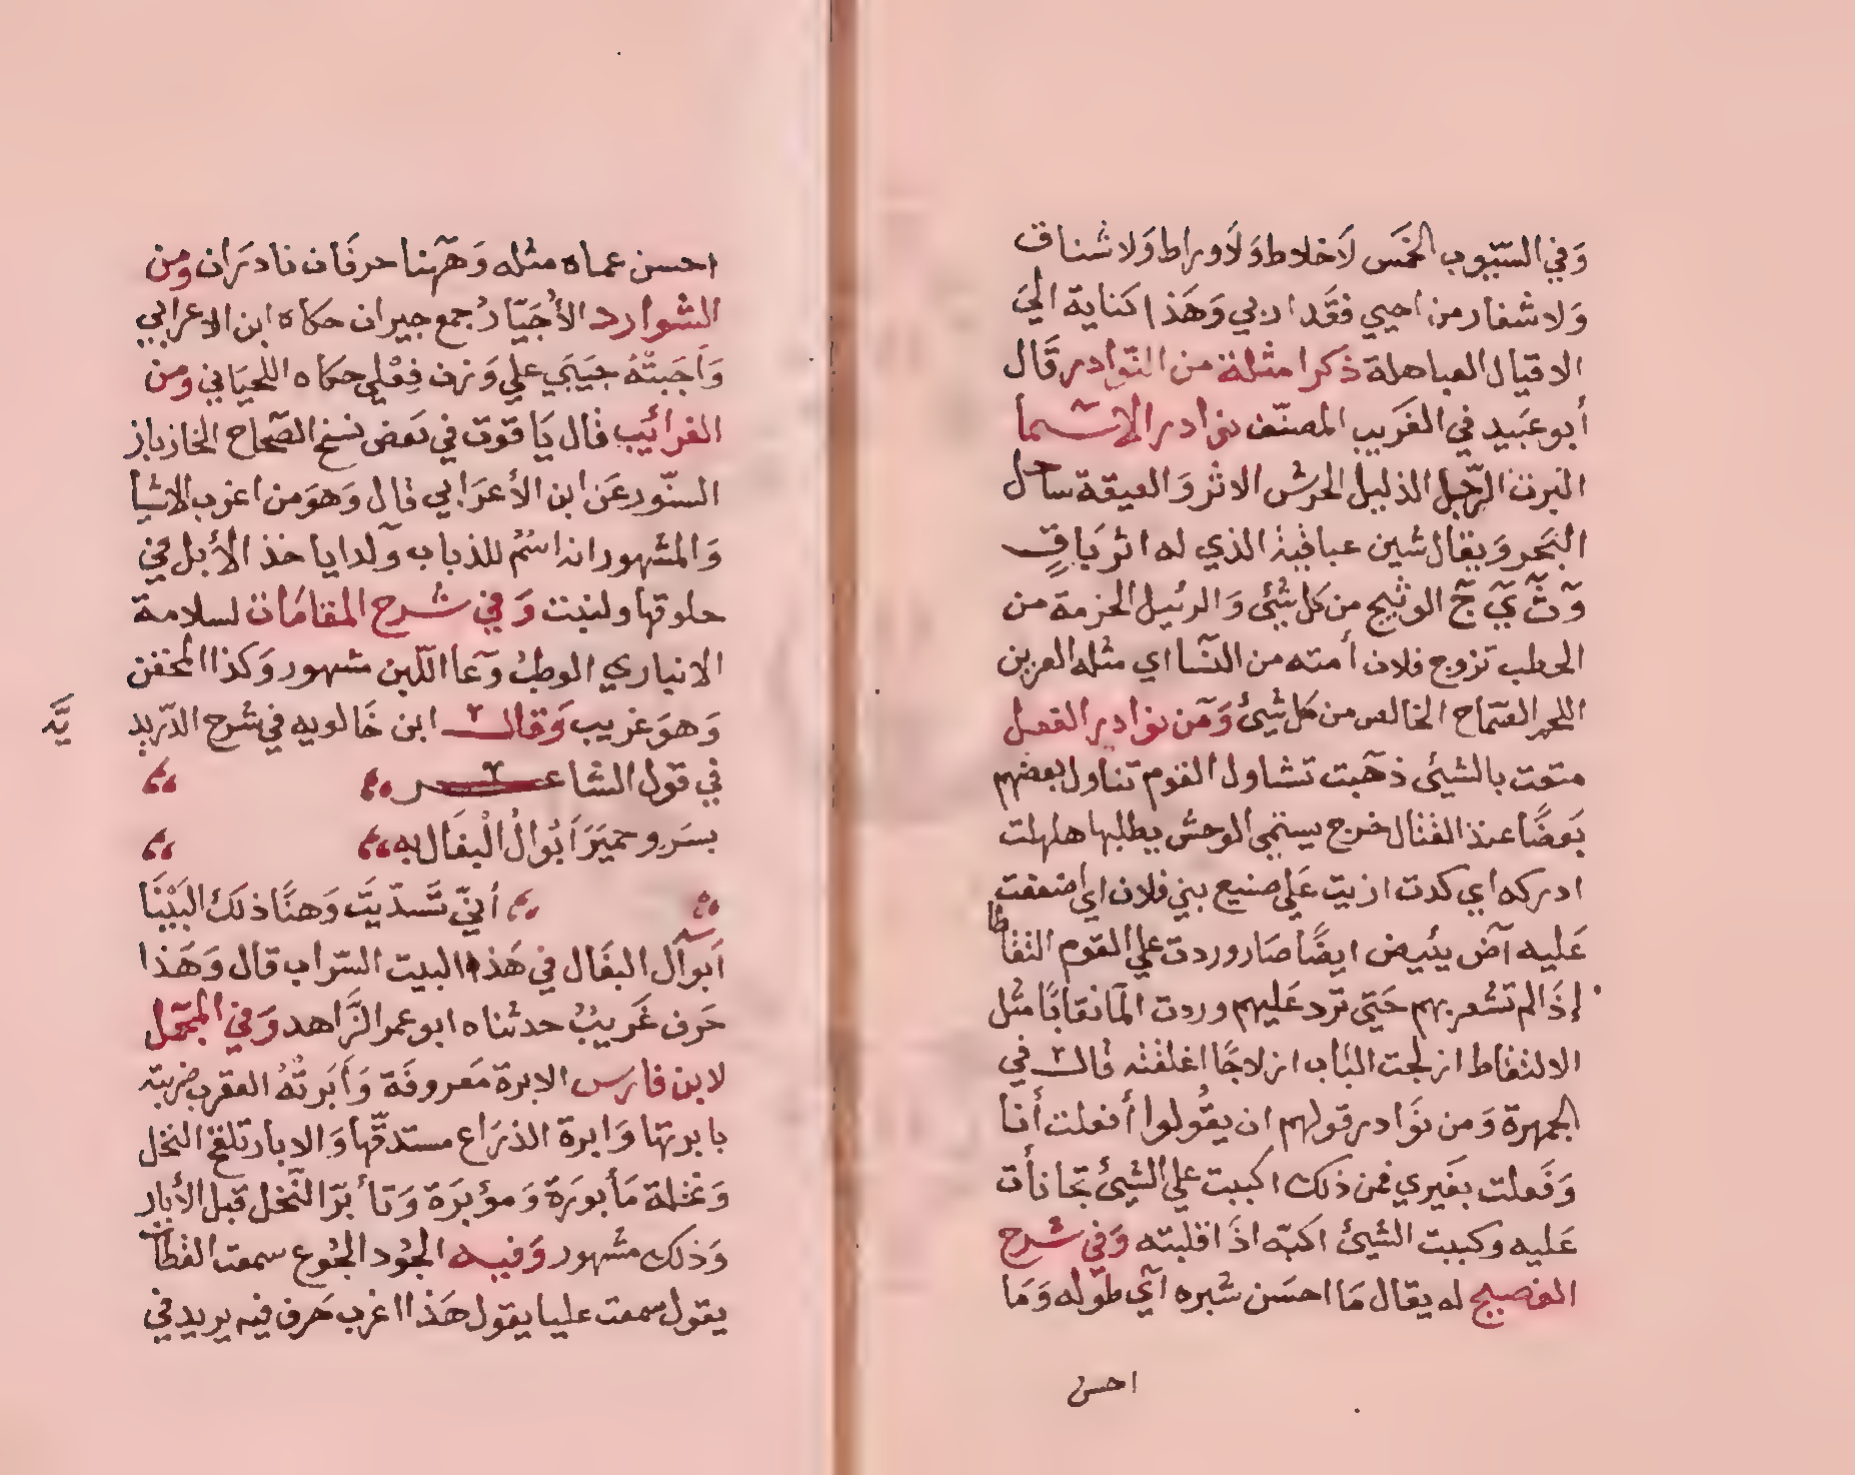 وَفي السّيوب الخمَس لاَ خلاط وَلاَ وراط وَلا شناق
وَلا شغار من احبي فقَد اربي وَهَذا كناية الي
الاقيال العباهلة ذكر امثلة من النّوادر قَال
أبو عبَيد في الغَريب المصنّف نوادر الاسما
البرت الرّجل الذليل الحرش الاثر وَالعيقة ساحل
البَحر وَيقال شين عباقية الذي له اثر بَاقٍ
وَ ثَ يَ جَ الوثيج من كل شئي وَالرئيل الحزمة من
الحطب تزوج فلان أمته من النّسا اي مثله العرين
اللحم الصّماح الخالص من كل شيئ وَمن نوادر الفعل
متعت بالشيئ ذهَبت تشاول القوم تناول بعضهم
بَعضًا عند القتال خرج يستمي الوحش يطلبها هلهلت
ادركه اي كدت ازيت عَلي صنيع بني فلان اي اضعفت
عَليه آض يئيض ايضًا صَار وردت علي القوم التقاطا
إذَا لم تشعر بهم حَتي ترَد عَليهم وردت الما نقابًا مثل
الالتقاط ازلجت البَاب ازلاجًا اغلقته قال في
الجمهرة وَمن نَوادر قولهم ان يقُولوا أفعلت أنا
وَفَعلت بغَيري فمن ذلك اكببت علي الشيئ تجانأت
عَليه وكببت الشيئ اكبّه اذَا قلبته وَفي شرح
الفصيح له يقال مَا احسَن شبره آي طوله وَمَا
احسن
احسن عماه مثله وَهَمنا حرفَان نادرَان وَمن
الشوارد الأُجيَار جمع جيران حكاه ابن الاعرابي
وَاَجَبتْهُ جيَبَي علي وَزن فِعْلي حكاه اللحيَاني وَمن
الغرائب قال يَاقوت في بَعض نسخ الصّحاح الخازباز
السنّور عَن ابن الأعرَابي قال وَهوَ من اغرب الاشيا
وَالمشهور انه اسْمُ للذباب وَلدا ياخذ الأبل في
حلوقها ولنبت وَفي شرح المقامَات لسلامة
الانباري الوطبُ وَعا اللّبن مشهور وَكذا المحقن
وَهوَ غريب وَقال ابن خَالويه في شرح الدّريد
يَّه
في قول الشاعر
بسَرو حميَرَ اَبْوَالُ الْبغَال به
أنيّ تَسَدّيَتَ وَهنًا ذلكَ البَيْنَا
اَبوال البغَال في هَذا البيت السّراب قال وَهَذا
حَرف غَريبُ حدثناه ابو عمر الزَّاهد وَفي المجَمل
لابن فارس الابرة مَعروفَة وَأبَرتْهُ العقرب ضربته
بابرتها وَابرة الذرَاع مستدقّها وَالابار تلقح النخل
وَنخلة مَأبورَة وَمؤبرَة وَتأبرّ النّخل قبل الأبار
وَذلك مشهور وَفيه الجوُد الجوُع سمعت القطان
يقول سمعت عليا يقول هَذا اغرب حَرف فيه يريد في